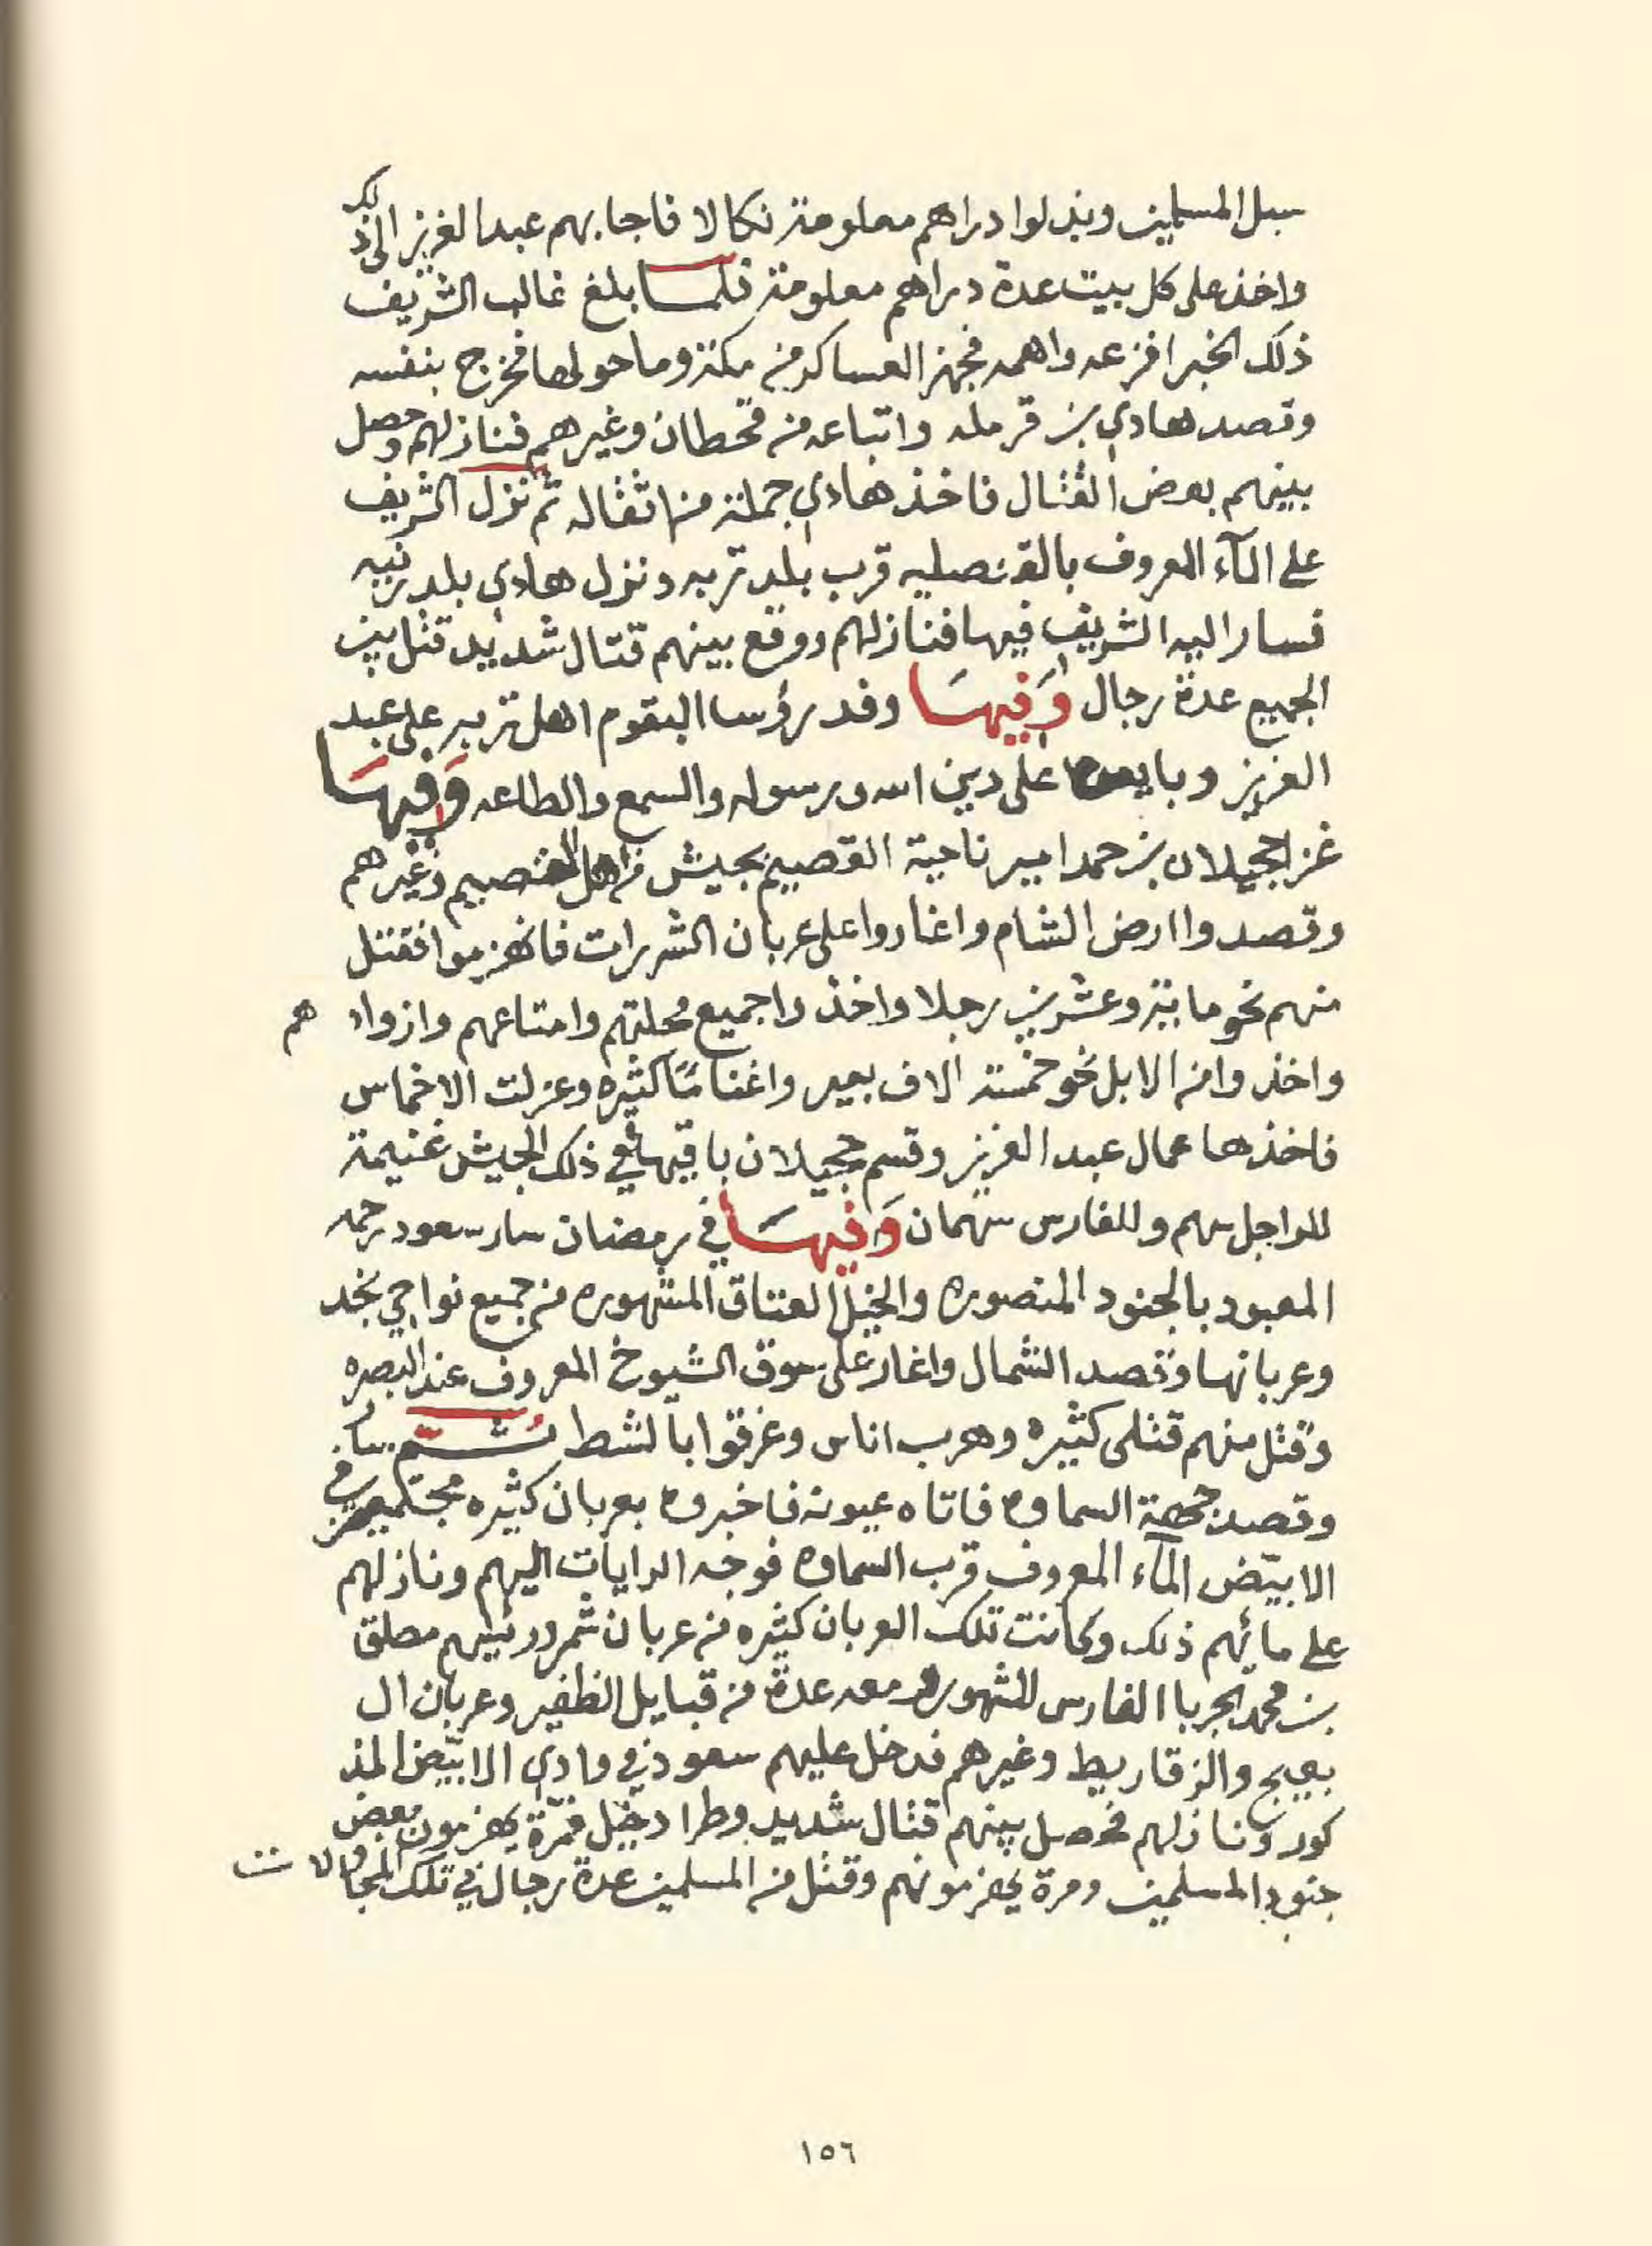 سبل المسلمين وبذلوا دراهم معلومة نكالا فاجابهم عبدالعزيز الى ذلك
واخذ على كل بيت عدة دراهم معلومة فلما بلغ غالب الشريف
ذلك الخبر افزعه واهمه فجهز العساكر من مكة وما حولها فخرج بنفسه
وقصد هادي بن قرمله واتباعه من قحطان وغيرهم فنازلهم وحصل
بينهم بعض القتال فاخذ هادي جملة من اثقاله ثم نزل الشريف
على المآء المعروف بالقنصليه قرب بلد تربه ونزل هادي بلد رنيه
فسار اليه الشريف فيها فنازلهم ووقع بينهم قتال شديد قتل بين
الجميع عدة رجال وَفِيهَا وفد رؤسا البقوم اهل تربه على عبد
العزيز وبايعوه على دين الله ورسوله والسمع والطاعه وَفِيهَا
غزا حجيلان بن حمد امير ناحية القصيم بجيش من اهل القصيم وغيرهم
وقصدوا ارض الشام واغاروا على عربان الشرارات فانهزموا فقتل
منهم نحو ماية وعشرين رجلا واخذوا جميع محلتهم وامتاعهم وازوادهم
واخذوا من الابل نحو خمسة الاف بعير واغنامًا كثيره وعزلت الاخماس
فاخذها عمال عبدالعزيز وقسم حجيلان باقيها في ذلك الجيش غنيمة
للراجل سهم وللفارس سهمان وَفِيهَا في رمضان سار سعود رحمه
المعبود بالجنود المنصوره والخيل العتاق المشهوره من جميع نواحي نجد
وعربانها وقصد الشمال واغار على سوق الشيوخ المعروف عند البصره
وقتل منهم قتلى كثيره وهرب اناس وغرقوا بالشط ثُمَّ سار
وقصد جهة السماوه فاتاه عيونه فاخبروه بعربان كثيره مجتمعين في
الابيّض المآء المعروف قرب السماوه فوجه الرايات اليهم ونازلهم
على مائهم ذلك وكانت تلك العربان كثيره من عربان شمر ورئيسهم مطلق
بن محمد الجربا الفارس المشهور ومعه عدة من قبايل الظفير وعربان ال
بعيج والزقاريط وغيرهم فدخل عليهم سعود في وادي الابيّض المذ
كور ونازلهم فحصل بينهم قتال شديد وطراد خيل فمرّة يهزمون بعض
جنود المسلمين ومرة يهزمونهم وقتل من المسلمين عدة رجال في تلك المجاولات
١٥٦